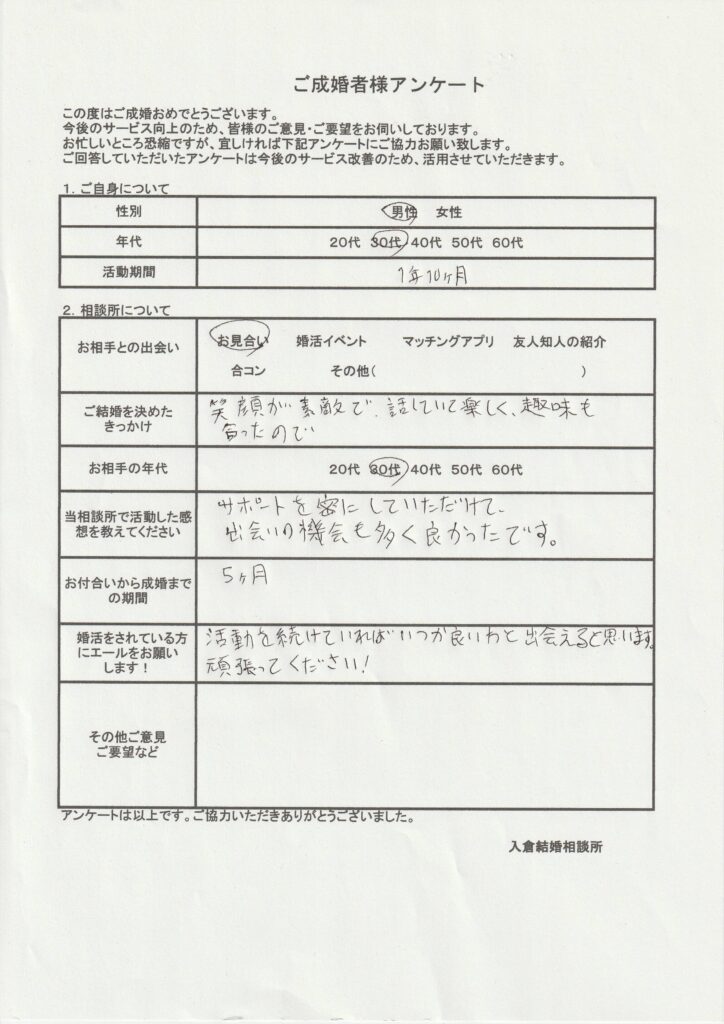 ご成婚者様アンケート
この度はご成婚おめでとうございます。
今後のサービス向上のため、皆様のご意見・ご要望をお伺いしております。
お忙しいところ恐縮ですが、宜しければ下記アンケートにご協力お願い致します。
ご回答していただいたアンケートは今後のサービス改善のため、活用させていただきます。
1. ご自身について
性別 男性 女性
年代 20代 30代 40代 50代 60代
活動期間 1年10ヶ月
2. 相談所について
お相手との出会い お見合い 婚活イベント マッチングアプリ 友人知人の紹介
合コン その他( )
ご結婚を決めた
きっかけ
笑顔が素敵で、話していて楽しく、趣味も
合ったので
お相手の年代 20代 30代 40代 50代 60代
当相談所で活動した感
想を教えてください
サポートを密にしていただけて、
出会いの機会も多く良かったです。
お付合いから成婚まで
の期間
5ヶ月
婚活をされている方
にエールをお願い
します!
活動を続けていればいつか良い人と出会えると思います。
頑張ってください!
その他ご意見
ご要望など
アンケートは以上です。ご協力いただきありがとうございました。
入倉結婚相談所